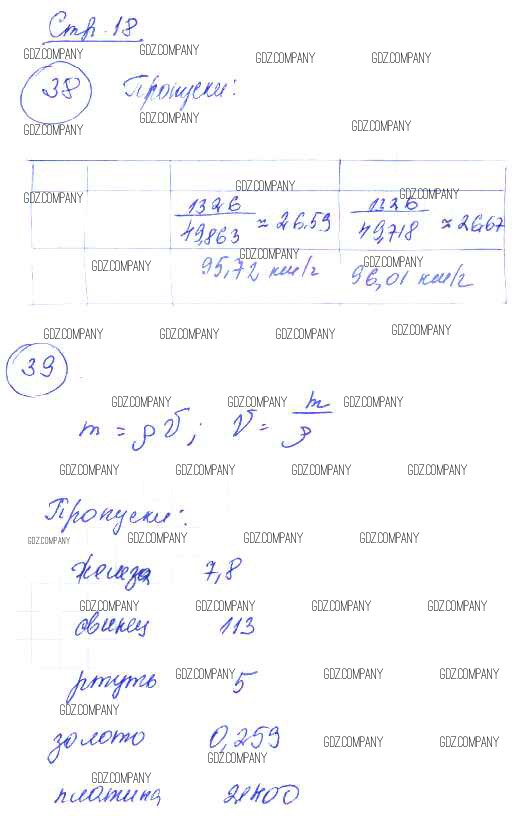 Стр. 18
GDZ.COMPANY GDZ.COMPANY GDZ.COMPANY GDZ.COMPANY
38 Пропуски:
GDZ.COMPANY GDZ.COMPANY GDZ.COMPANY
GDZ.COMPANY GDZ.COMPANY GDZ.COMPANY
1326/49,863 ≈ 26,59 1326/49,718 ≈ 26,67
GDZ.COMPANY GDZ.COMPANY GDZ.COMPANY
95,72 км/г 96,01 км/г
GDZ.COMPANY GDZ.COMPANY GDZ.COMPANY GDZ.COMPANY
39
GDZ.COMPANY GDZ.COMPANY GDZ.COMPANY
m = ρV; V = m/ρ
GDZ.COMPANY GDZ.COMPANY GDZ.COMPANY GDZ.COMPANY
Пропуски:
GDZ.COMPANY GDZ.COMPANY GDZ.COMPANY GDZ.COMPANY
железа 7,8
GDZ.COMPANY GDZ.COMPANY GDZ.COMPANY GDZ.COMPANY
свинец 113
ртуть GDZ.COMPANY 5 GDZ.COMPANY GDZ.COMPANY
GDZ.COMPANY
золото 0,259 GDZ.COMPANY GDZ.COMPANY
GDZ.COMPANY
GDZ.COMPANY
платина 21400